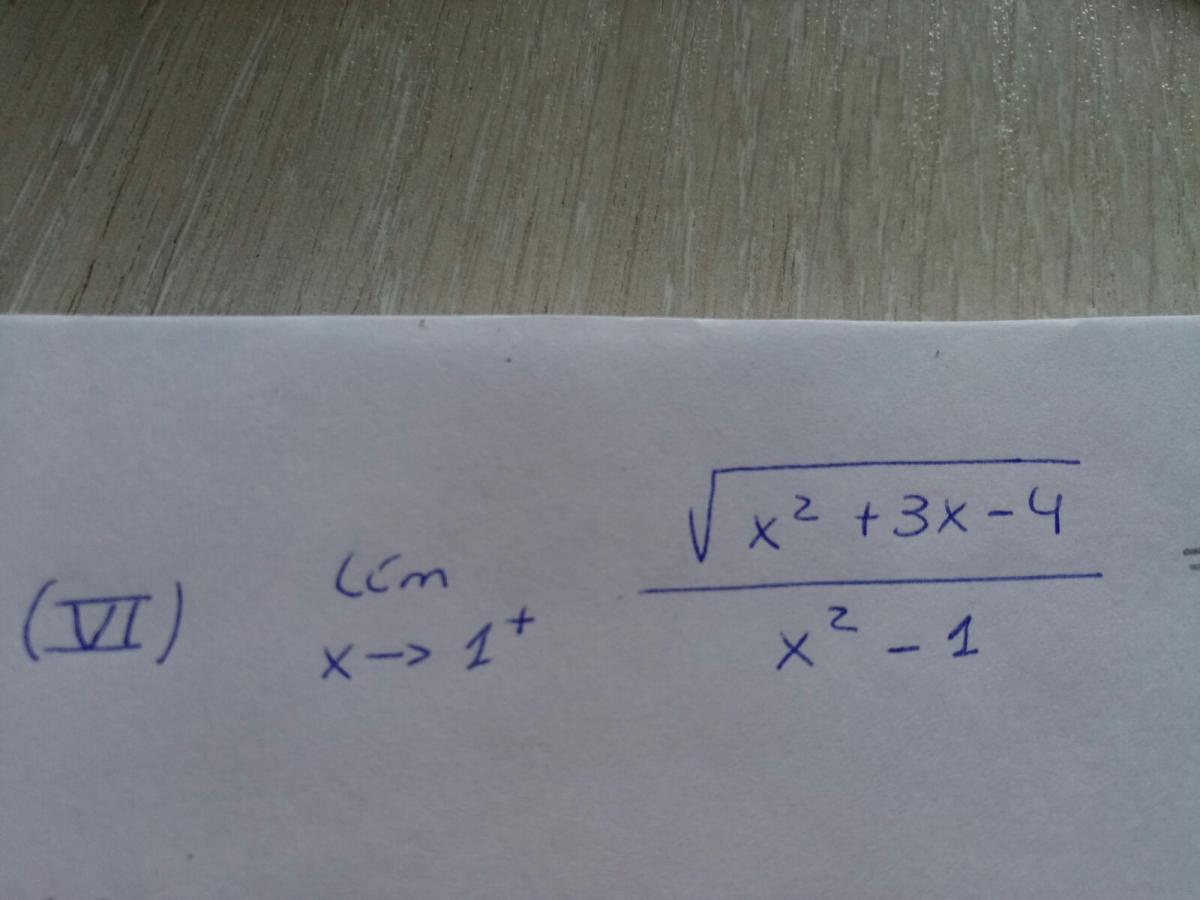 (VI) lím x → 1⁺ √(x² + 3x - 4) / (x² - 1) =